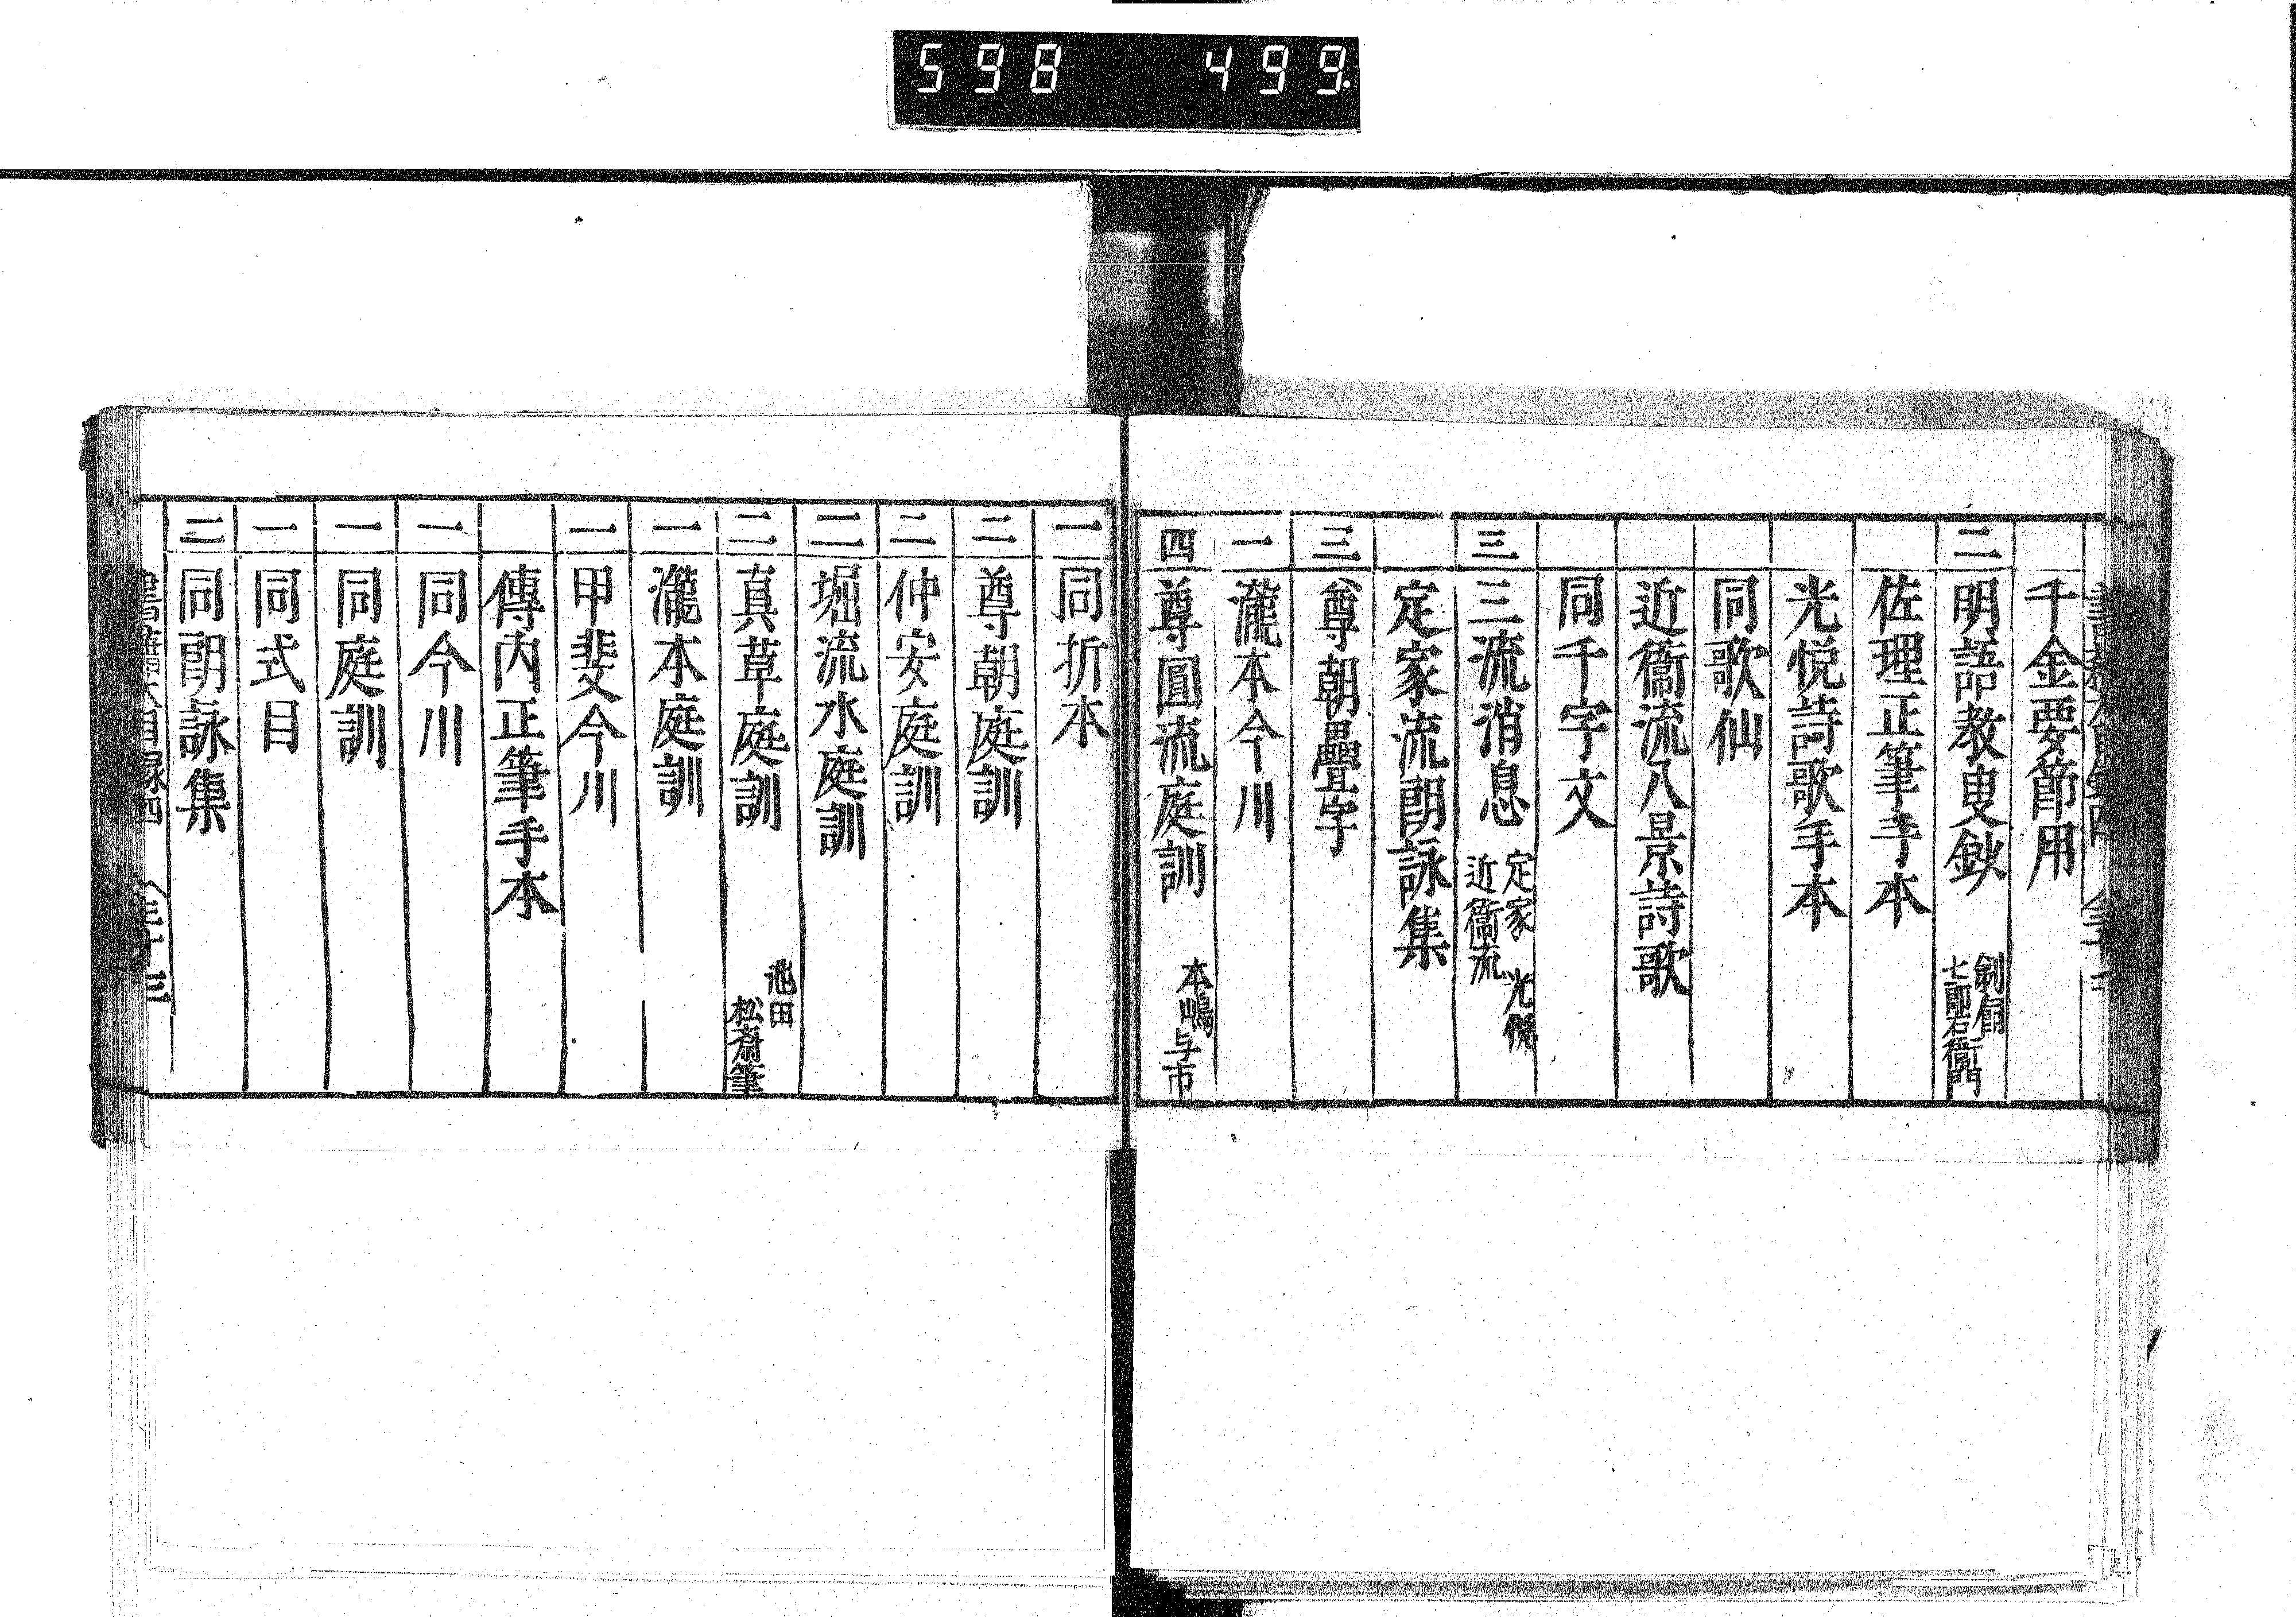 598 499.
千金要節用
二 明語教叟鈔 釼屑 七郎右衛門
佐理正筆手本
光悦詩歌手本
同歌仙
近衞流八景詩歌
同千字文
三 三流消息 定家 光悦 近衞流
定家流朗詠集
三 尊朝疊字
一 瀧本今川
四 尊圓流庭訓 本嶋与市
一 同折本
二 尊朝庭訓
二 仲安庭訓
二 堀流水庭訓
二 真草庭訓 池田 松齋筆
一 瀧本庭訓
一 甲斐今川
傳内正筆手本
一 同今川
一 同庭訓
一 同式目
二 同朗詠集